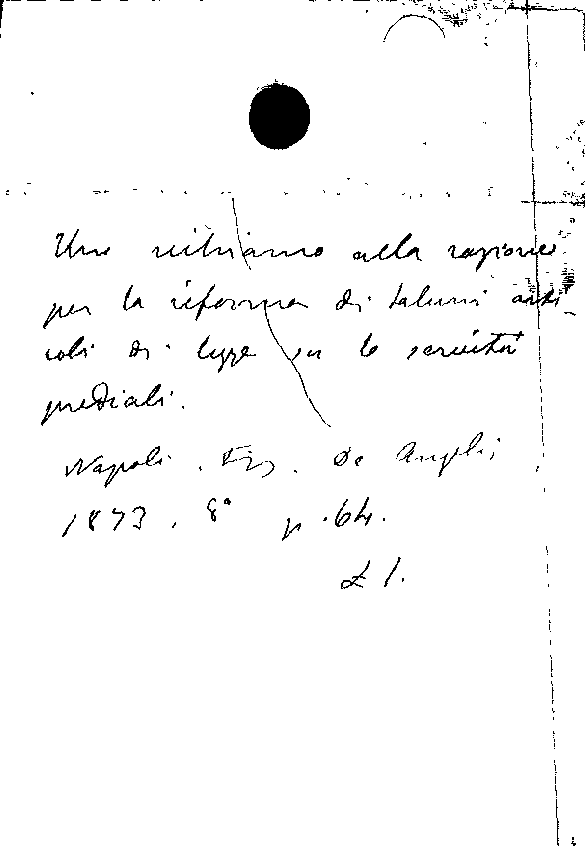 Un richiamo alla ragione
per la riforma di taluni arti
coli di legge su le servitù
prediali.
Napoli. Tip. De Angelis
1873. 8° p. 64.
£ 1.